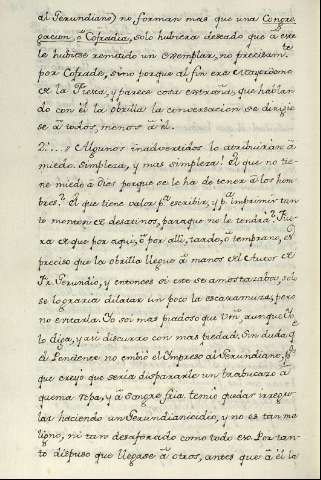 al Gerundiano) no forman mas que una Congre-
gacion, ò Cofradia, solo hubiera deseado que à este
le hubiese remitido un exemplar, no precisamte
por Cofrade, sino porque al fin era el
de la Fiesta, y parece cosa estraña, que hablan-
do con èl la obrilla la conversacion se dirigie-
se à todos, menos à èl.
2. Algunos inadvertidos lo atribuiràn à
miedo. Simpleza, y mas simpleza! El que no tie-
ne miedo à Dios porque se le ha de tener à los hom-
bres? El que tiene valor pa escribir, y pa imprimir tan-
to monton de desatinos, paraque no le tendrà? Fue-
ra de que por aqui, ò por alli, tarde, ò temprano, es
preciso que la obrilla llegue à manos del Autor de
Fr. Gerundio, y entonces si este se amostazaba, solo
se lograria dilatar un poco la escaramuza, pero
no evitarla. Yo soi mas piadoso que Vm, aunque
lo diga, y asi discurro con mas piedad. Sin duda, qe
el Penitente no embiò el Impreso al Gerundiano, pr
que creyò que seria dispararle un trabucazo à
quema ropa, y à sangre fria temiò quedar irregu-
lar haciendo un Gerundianicidio, y no es tan ma-
ligno, ni tan desaforado como todo eso. Por tan-
to dispuso que llegase à otros, antes que à èl la